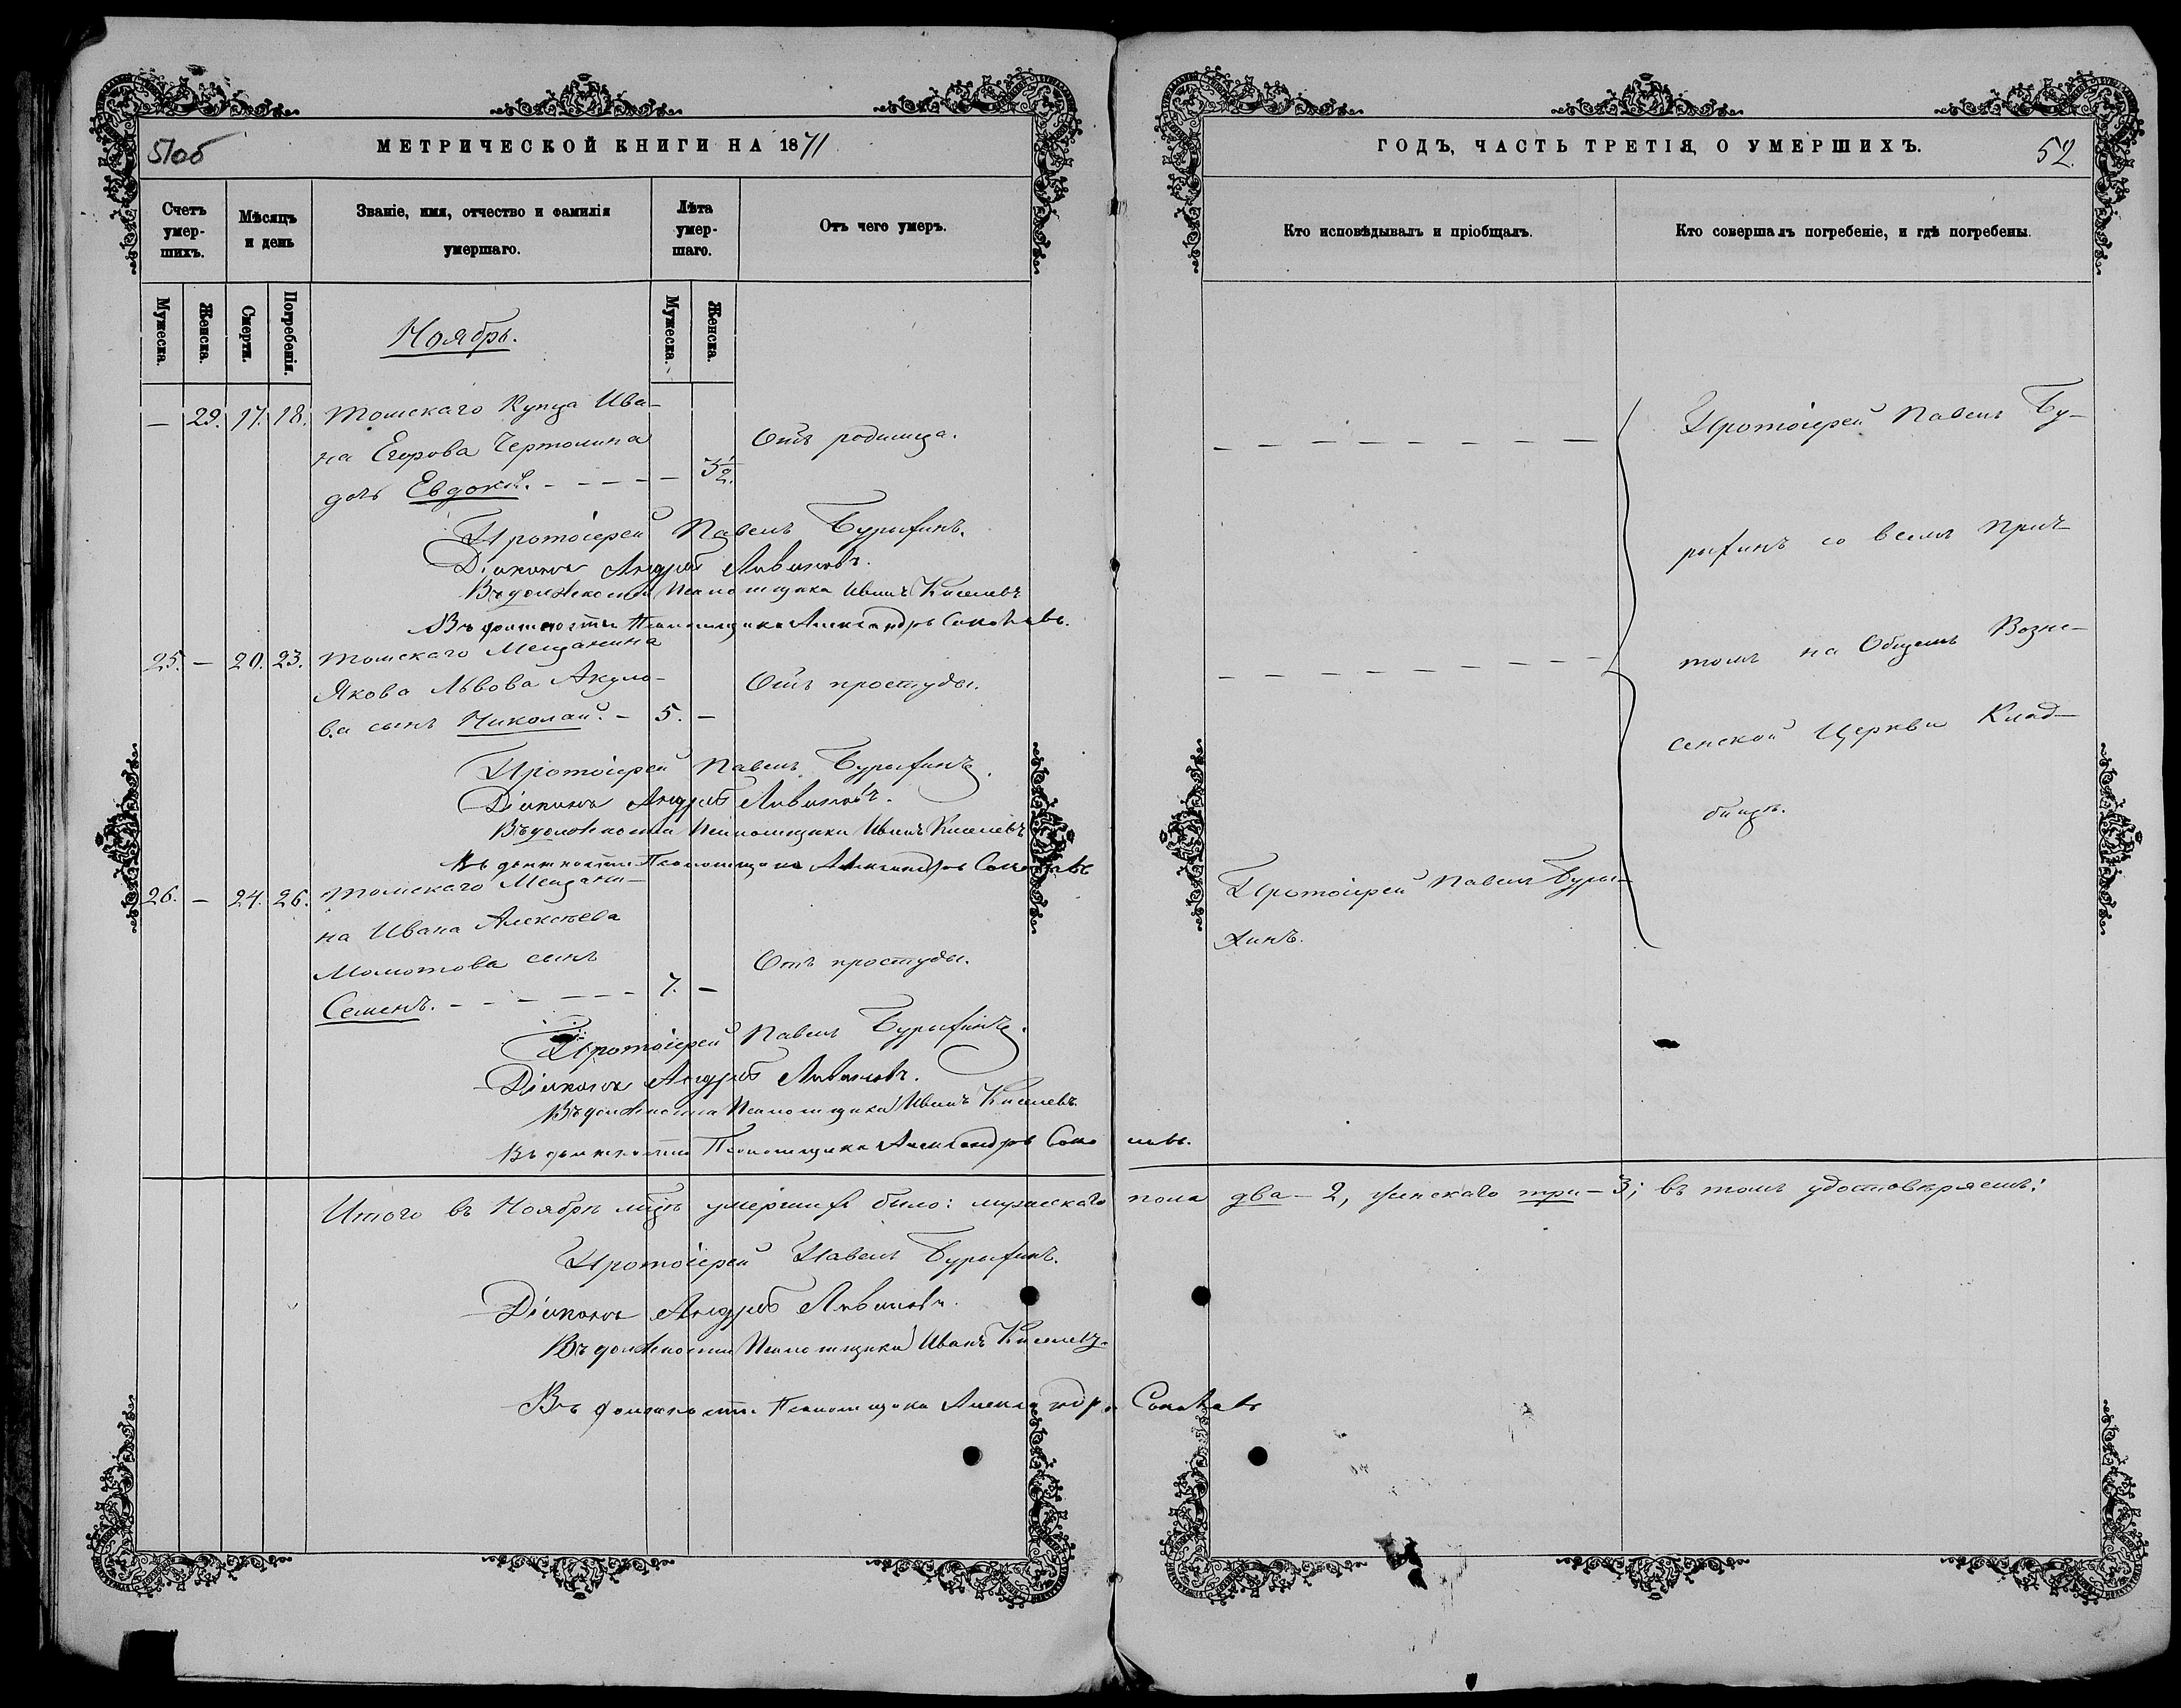 51об
МЕТРИЧЕСКОЙ КНИГИ НА 1871
Счетъ умер-шихъ.
Мѣсяцъ и день
Званіе, имя, отчество и фамилія умершаго.
Лѣта умер-шаго.
Отъ чего умеръ.
Мужеска.
Женска.
Смерти.
Погребенія.
Мужеска.
Женска.
Ноябрь.
— 29. 17. 18. Томскаго Купца Ива-
на Егорова Чертолина
дочь Евдокія. - - - - - 3 1/2.
Отъ родимца.
Протоіерей Павелъ Бурыхинъ.
Діаконъ Андрей Ливановъ.
Въ должности Псаломщика Иванъ Киселевъ
Въ должности Псаломщика Александръ Соколовъ.
25. — 20. 23. Томскаго Мещанина
Якова Львова Акуло-
ва сынъ Николай. - 5. -
Отъ простуды.
Протоіерей Павелъ Бурыхинъ.
Діаконъ Андрей Ливановъ.
Въ должности Псаломщика Иванъ Киселевъ
Въ должности Псаломщика Александръ Соколовъ
26. — 24. 26. Томскаго Мещани-
на Ивана Алексѣева
Молотова сынъ
Семенъ. - - - - - - 7. -
Отъ простуды.
Протоіерей Павелъ Бурыхинъ.
Діаконъ Андрей Ливановъ.
Въ должности Псаломщика Иванъ Киселевъ.
Въ должности Псаломщика Александръ Соколовъ.
Итого въ Ноябрѣ мцѣ умершихъ было: мужескаго пола два - 2, женскаго три - 3; въ томъ удостовѣряемъ:
Протоіерей Павелъ Бурыхинъ.
Діаконъ Андрей Ливановъ.
Въ должности Псаломщика Иванъ Киселевъ.
Въ должности Псаломщика Александръ Соколовъ
ГОДЪ, ЧАСТЬ ТРЕТІЯ, О УМЕРШИХЪ.
52.
Кто исповѣдывалъ и пріобщалъ.
Кто совершалъ погребеніе, и гдѣ погребены.
Протоіерей Павелъ Бу-
рыхинъ со всемъ прич-
томъ на Общемъ Возне-
сенской Церкви Клад-
бищѣ.
Протоіерей Павелъ Буры-
хинъ.